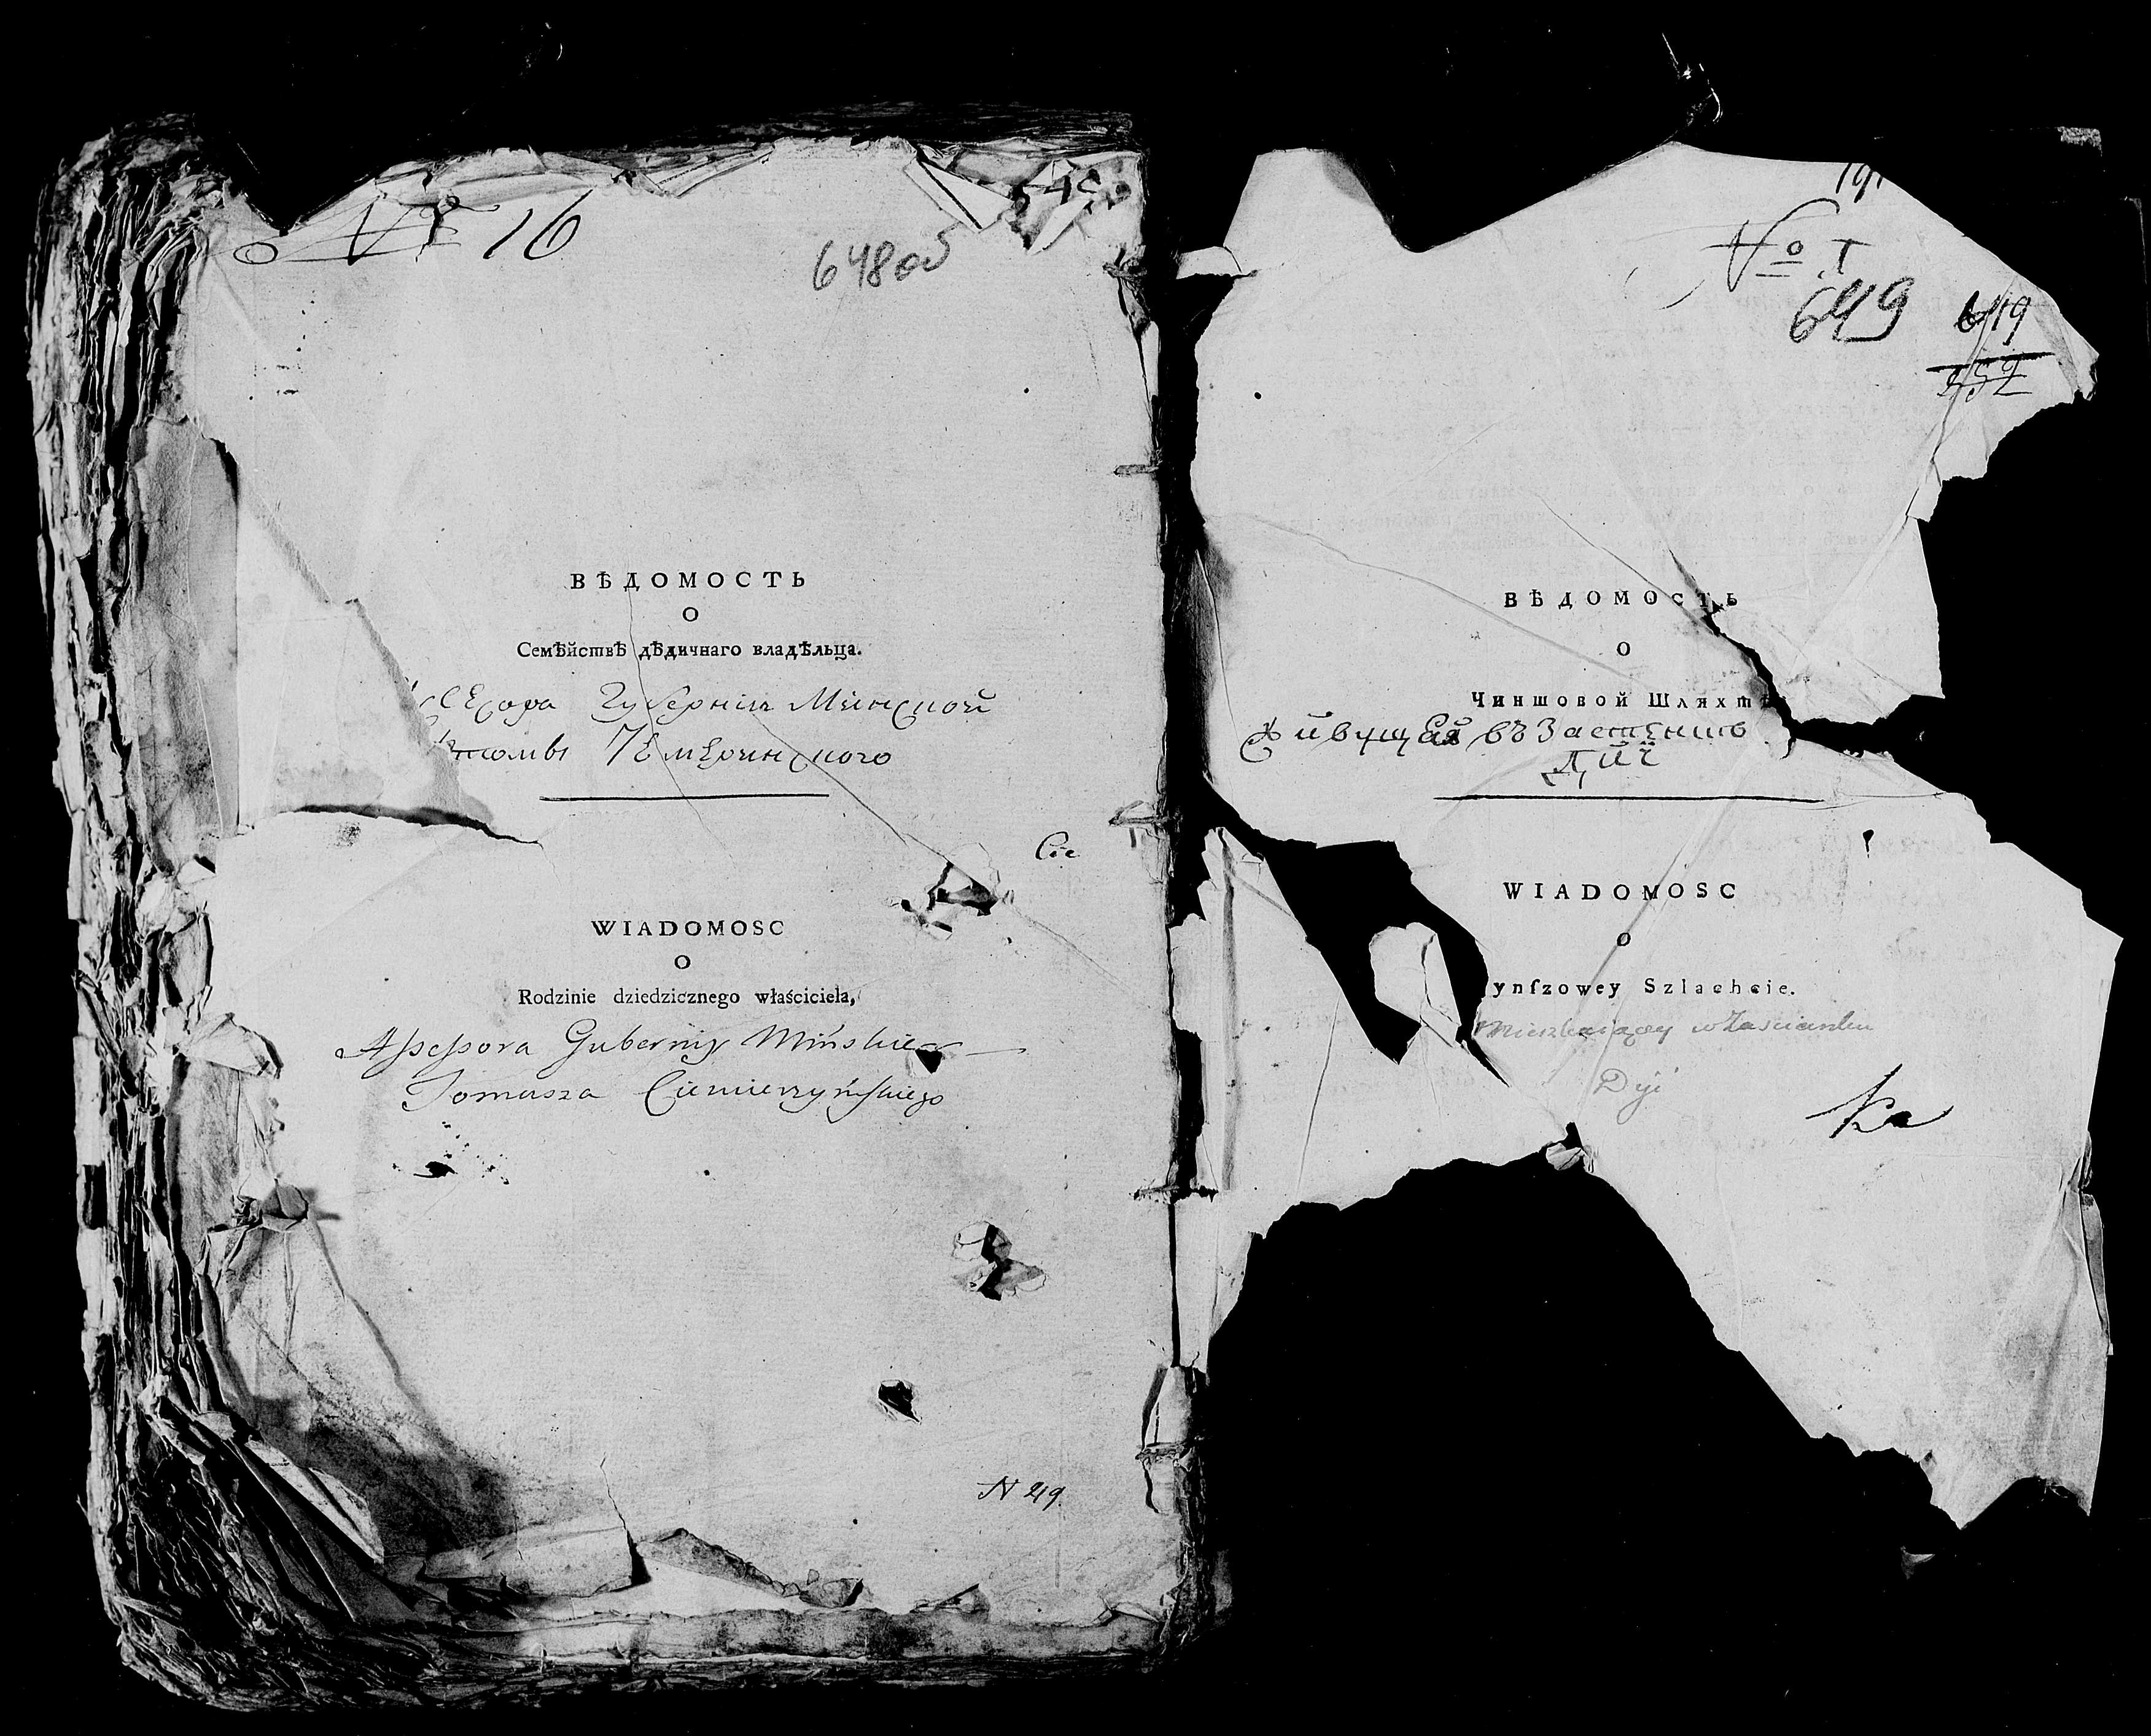 № 16
648 об
ВѢДОМОСТЬ
О
Семѣйствѣ дѣдичнаго владѣльца.
Губернiи Минской
Цемеринского
Cie
WIADOMOSC
O
Rodzinie dziedzicznego właściciela,
Assessora Gubernij Mińskiey
Tomasza Ciemierzyńskiego
N 219.
191
№ 1
649
649
552
ВѢДОМОСТЬ
О
Чиншовой Шляхтѣ
Живущей въ Застѣнкѣ
Дiй
WIADOMOSC
O
ynſzowey Szlachcie.
Mieszkaiącey w Zascianku
Dyi
ka